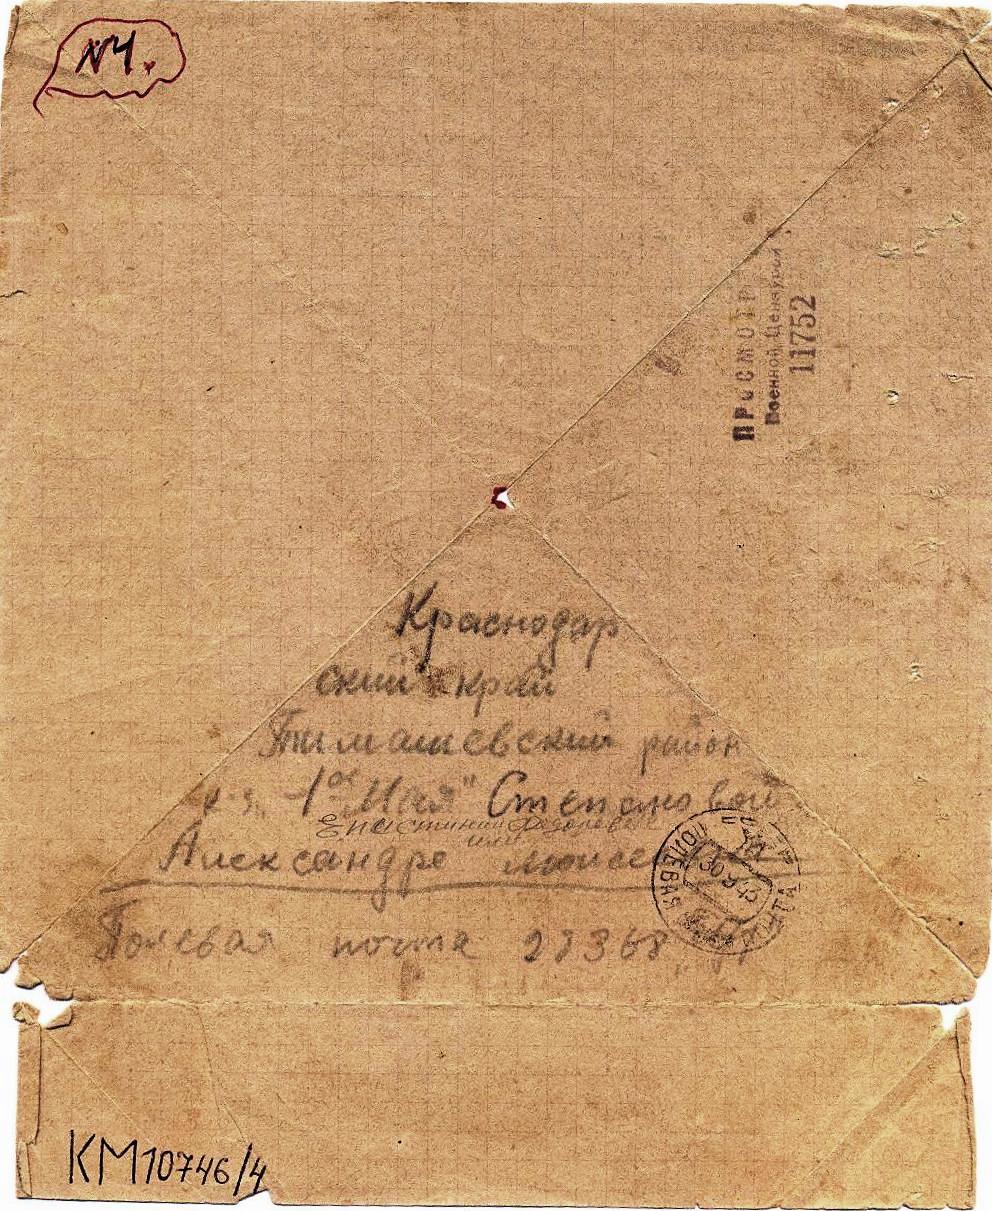 №4.
ПРОСМОТР
Военной Цензурой
11752
Краснодар
ский край
Тимашевский район
к-з. "1ое Мая" Степановой
Епистинии Федоровне
или
Александре
Полевая почта 28368
ПОЛЕВАЯ ПОЧТА
КМ10746/4